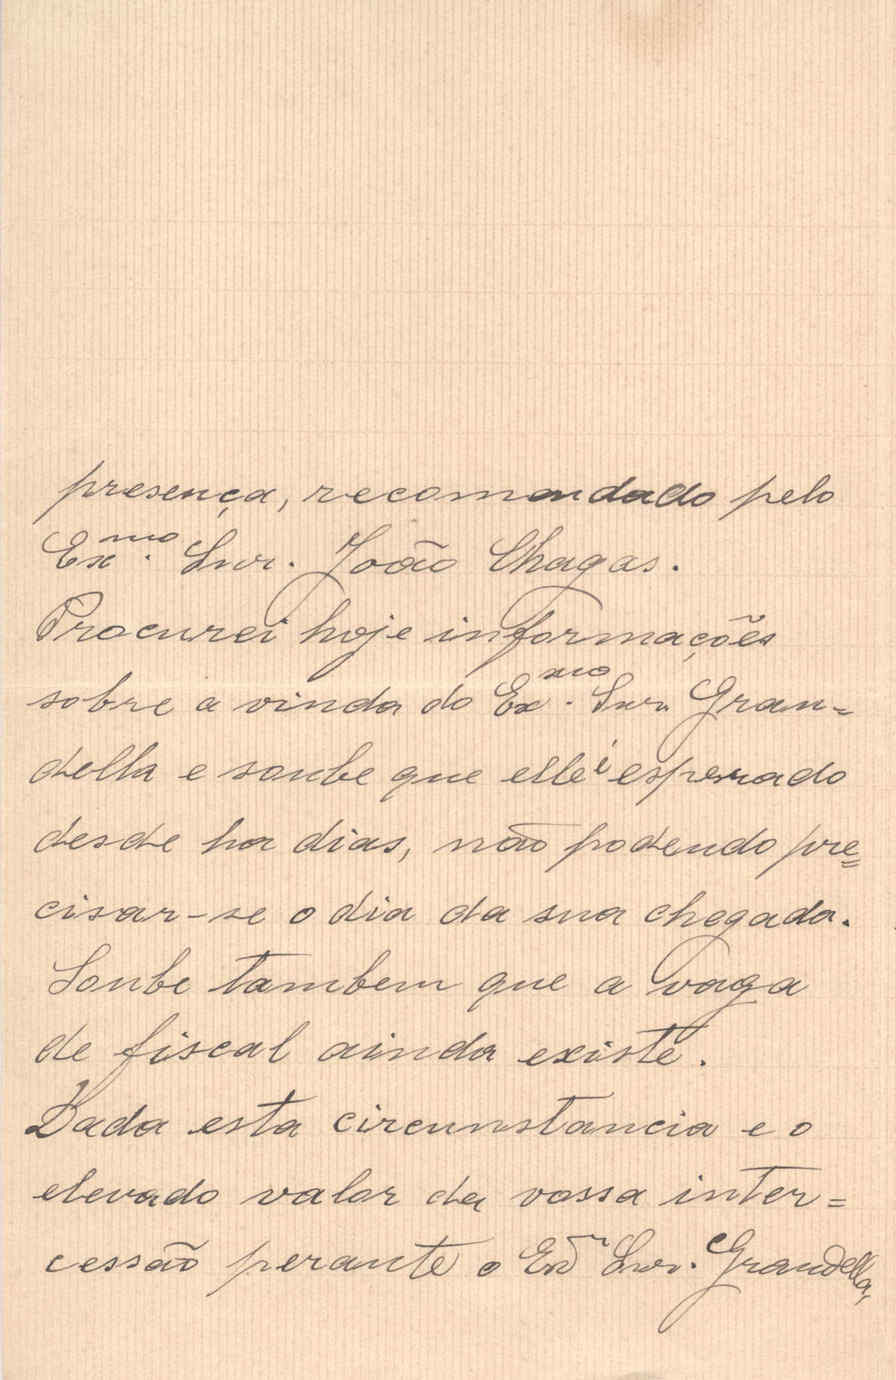 presença, recomendado pelo
Exmo. Snr. João Chagas.
Procurei hoje informações
sobre a vinda do Exmo. Snr. Gran-
della e soube que elle é esperado
desde ha dias, não podendo pre=
cisar-se o dia da sua chegada.
Soube tambem que a vaga
de fiscal ainda existe.
Dada esta circunstancia e o
elevado valor da vossa inter=
cessão perante o Exmo Snr. Grandella,